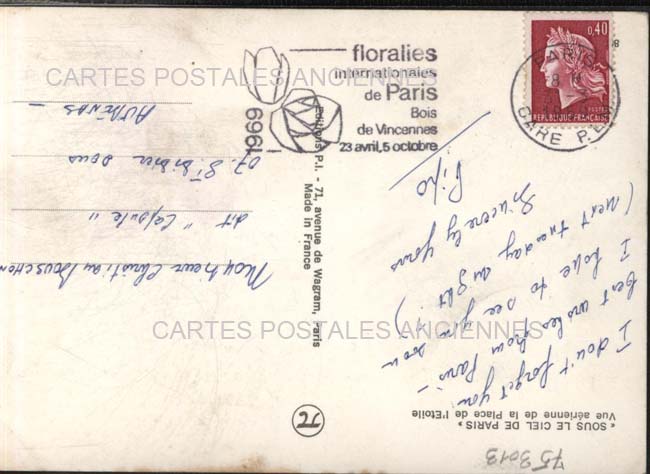 floralies
internationales
de Paris
Bois
de Vincennes
23 avril, 5 octobre
1969
0,40
POSTES
REPUBLIQUE FRANÇAISE
PARIS
GARE P.
CARTES POSTALES ANCIENNES
CARTES POSTALES ANCIENNES
« SOUS LE CIEL DE PARIS »
Vue aérienne de la Place de l'Etoile
I don't forget you
best wishes from Paris –
I hope to see you soon
(next tuesday au
Sincerely yours
Editions P.I. - 71, avenue de Wagram, Paris
Made in France
Monsieur Christian
dit "
07. St
sous
Aubenas –
75 3013